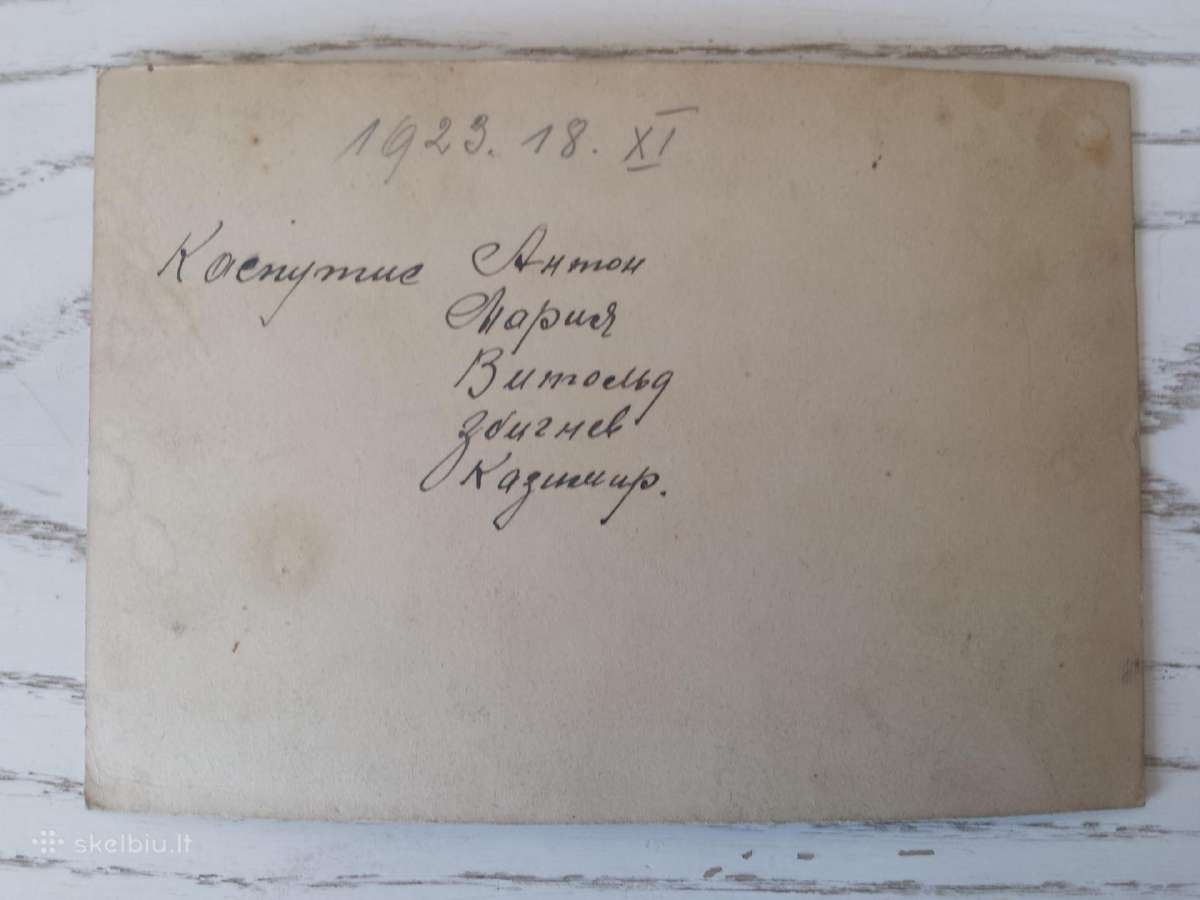 1923. 18. XI
Каспутис Антон
Мария
Витольд
Збигнев
Казимир.
skelbiu.lt